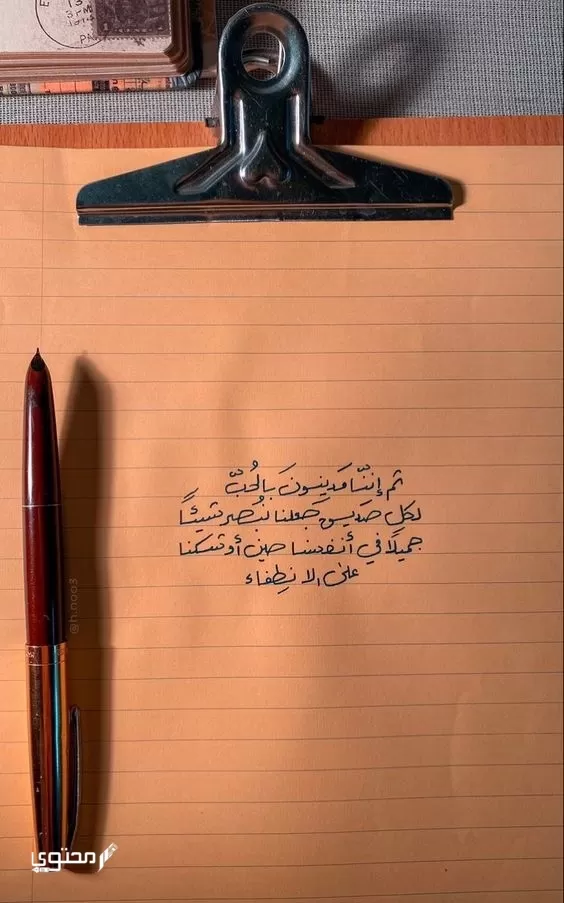 E
13
3 PM
1914
PA
ثم إننّا مَدينونَ بالحُبّ
لكل صديق جعلنا نُبصر شيئاً
جميلًا في أنفسنا حين أوشكنا
على الانطِفاء
@h.noo3
محتوي